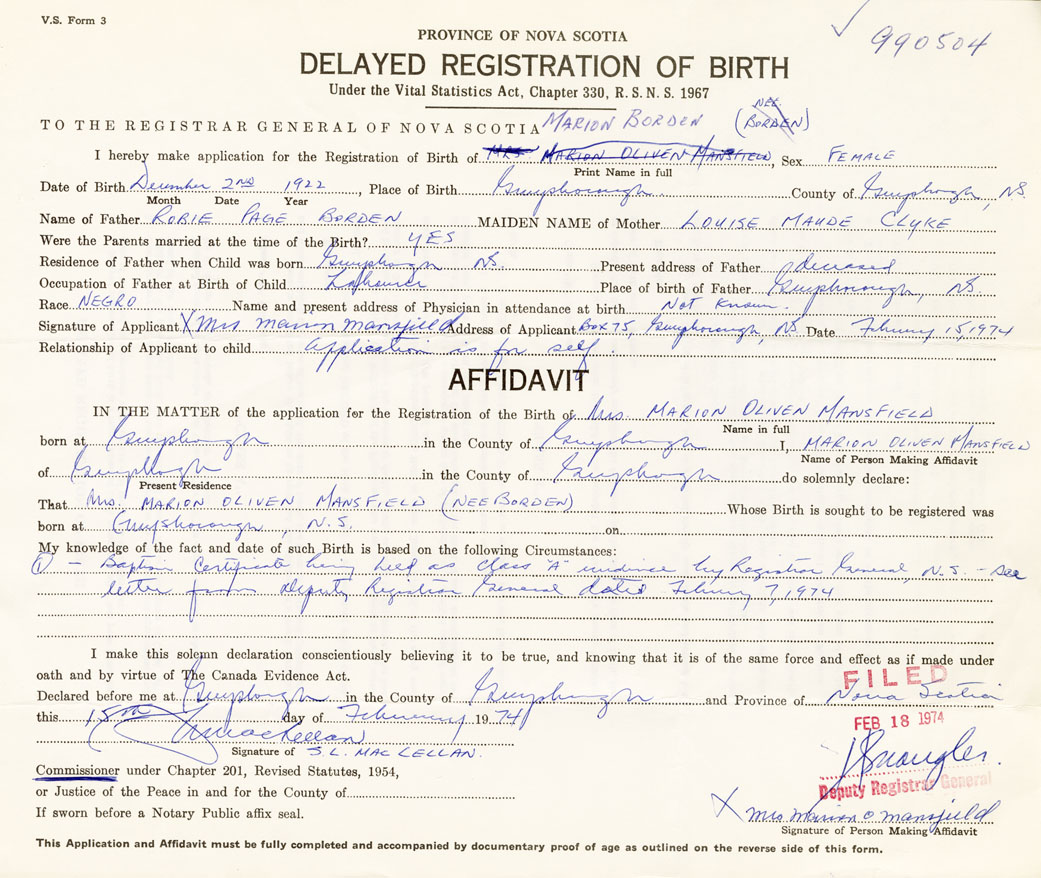 V.S. Form 3
PROVINCE OF NOVA SCOTIA
990504
DELAYED REGISTRATION OF BIRTH
Under the Vital Statistics Act, Chapter 330, R. S. N. S. 1967
NEE
TO THE REGISTRAR GENERAL OF NOVA SCOTIA MARION BORDEN (BORDEN)
I hereby make application for the Registration of Birth of MRS MARION OLIVEN MANSFIELD, Sex FEMALE
Print Name in full
Date of Birth December 2ND 1922, Place of Birth Guysborough County of Guysborough, NS.
Month Date Year
Name of Father ROBIE PAGE BORDEN MAIDEN NAME of Mother LOUISE MAUDE CLYKE
Were the Parents married at the time of the Birth? YES
Residence of Father when Child was born Guysborough NS. Present address of Father deceased
Occupation of Father at Birth of Child Labourer Place of birth of Father Guysborough, NS.
Race NEGRO Name and present address of Physician in attendance at birth Not Known.
Signature of Applicant X Mrs Marion Mansfield Address of Applicant Box 75, Guysborough, NS. Date February 15, 1974
Relationship of Applicant to child Application is for self.
AFFIDAVIT
IN THE MATTER of the application for the Registration of the Birth of Mrs. MARION OLIVEN MANSFIELD
Name in full
born at Guysborough in the County of Guysborough I, MARION OLIVEN MANSFIELD
Name of Person Making Affidavit
of Guysborough in the County of Guysborough do solemnly declare:
Present Residence
That Mrs. MARION OLIVEN MANSFIELD (NEE BORDEN) Whose Birth is sought to be registered was
born at Guysborough, N.S. on
My knowledge of the fact and date of such Birth is based on the following Circumstances:
① - Baptism Certificate being held as class "A" evidence by Registrar General, N.S. - See
letter from Deputy Registrar General dated February 7, 1974
I make this solemn declaration conscientiously believing it to be true, and knowing that it is of the same force and effect as if made under
oath and by virtue of The Canada Evidence Act.
FILED
Declared before me at Guysborough in the County of Guysborough and Province of Nova Scotia
this 15th day of February 1974
FEB 18 1974
S L MacLellan
Signature of S. L. MACLELLAN.
Commissioner under Chapter 201, Revised Statutes, 1954,
Deputy Registrar General
or Justice of the Peace in and for the County of
X Mrs Marion O Mansfield
If sworn before a Notary Public affix seal.
Signature of Person Making Affidavit
This Application and Affidavit must be fully completed and accompanied by documentary proof of age as outlined on the reverse side of this form.